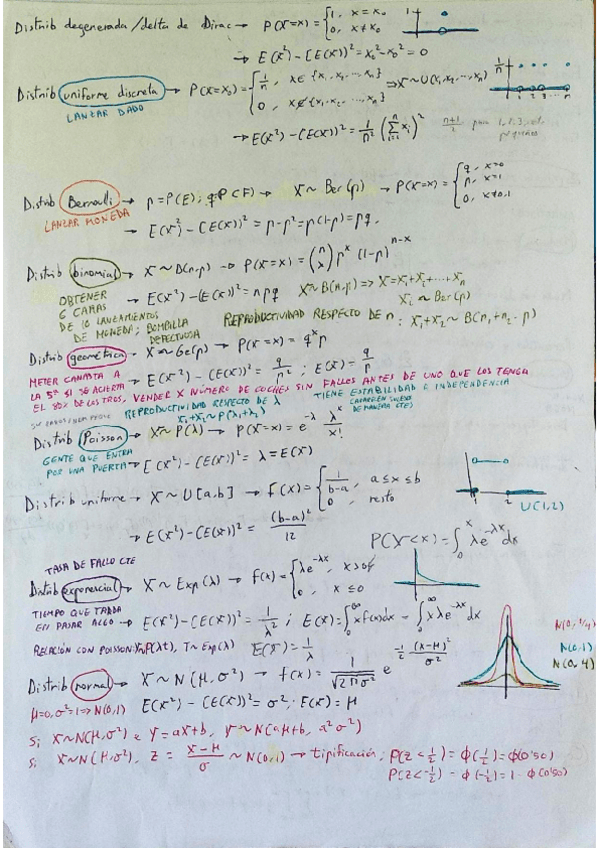 Distrib degenerada/delta de Dirac → P(X=x) = { 1, x = x₀ ; 0, x ≠ x₀
→ E(X²) - (E(X))² = x₀² - x₀² = 0
Distrib uniforme discreta → P(X=x₀) = { 1/n, x ∈ {x₁, x₂, ..., xₙ} ; 0, x ∉ {x₁, x₂, ..., xₙ} ⇒ X ~ U(x₁, x₂, ..., xₙ)
LANZAR DADO
→ E(X²) - (E(X))² = 1/n² (Σ xᵢ)² n+1/2 para 1, 2, 3,
Distrib Bernoulli → p = P(E); q = P(F) → X ~ Ber(p) → P(X=x) = { q, x=0 ; p, x=1 ; 0, x≠0,1
LANZAR MONEDA
→ E(X²) - (E(X))² = p - p² = p(1-p) = pq.
Distrib binomial → X ~ B(n,p) → P(X=x) = (n x) pˣ (1-p)ⁿ⁻ˣ
→ E(X²) - (E(X))² = npq X ~ B(n,p) => X = X₁+X₂+...+Xₙ
Xᵢ ~ Ber(p)
OBTENER
6 CARAS
DE 10 LANZAMIENTOS
DE MONEDA; BOMBILLA
DEFECTUOSA
REPRODUCTIVIDAD RESPECTO DE n: X₁+X₂ ~ B(n₁+n₂, p)
Distrib geométrica → X ~ Ge(p) → P(X=x) = qˣp
→ E(X²) - (E(X))² = q/p² ; E(X) = q/p
METER CANASTA A
LA 5ª SI SE ACIERTA
EL 80% DE LOS TIROS, VENDER X NÚMERO DE COCHES SIN FALLOS ANTES DE UNO QUE LOS TENGA
REPRODUCTIVIDAD RESPECTO DE λ TIENE ESTABILIDAD E INDEPENDENCIA
X₁+X₂ ~ P(λ₁+λ₂)
DE MANERA CTE)
Distrib Poisson → X ~ P(λ) → P(X=x) = e^-λ λˣ/x!
GENTE QUE ENTRA
POR UNA PUERTA
→ E(X²) - (E(X))² = λ = E(X)
Distrib uniforme → X ~ U[a,b] → f(x) = { 1/(b-a), a ≤ x ≤ b ; 0, resto
1 2
U(1,2)
→ E(X²) - (E(X))² = (b-a)²/12
P(X<x) = ∫₀ˣ λe^-λx dx
TASA DE FALLO CTE
Distrib exponencial → X ~ Exp(λ) → f(x) = { λe^-λx, x>0 ; 0, x ≤ 0
TIEMPO QUE TARDA
EN PASAR ALGO
→ E(X²) - (E(X))² = 1/λ² ; E(X) = ∫₀^∞ x f(x)dx = ∫₀^∞ xλe^-λx dx
RELACIÓN CON POISSON: P(λt), T ~ Exp(λ) E(X) = 1/λ
N(0, 1/4)
N(0,1)
N(0, 4)
Distrib normal → X ~ N(μ, σ²) → f(x) = 1/√(2πσ²) e^(-1/2 (x-μ)²/σ²)
μ=0, σ²=1 => N(0,1) E(X²) - (E(X))² = σ²; E(X) = μ
Si X~N(μ,σ²) e Y = aX+b, Y ~ N(aμ+b, a²σ²)
Si X~N(μ,σ²), Z = (X-μ)/σ ~ N(0,1) → tipificación; P(Z<1/2) = Φ(1/2) = Φ(0'50)
P(Z<-1/2) = Φ(-1/2) = 1 - Φ(0'50)